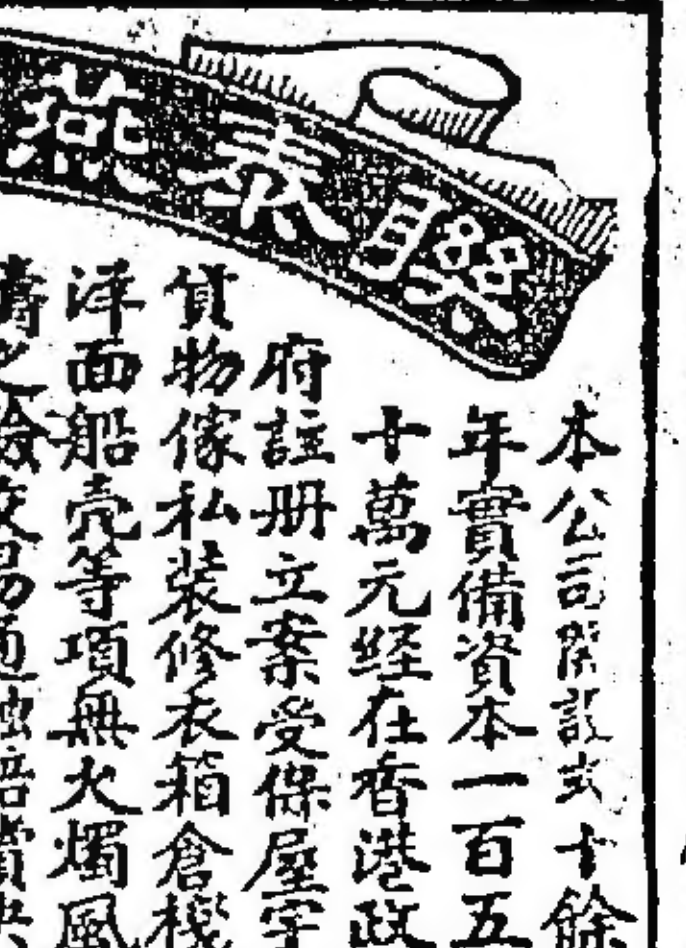 聯泰燕
本公司開設弍十餘
年實備資本一百五
十萬元經在香港政
府註册立案受保屋宇
貨物傢私裝修衣箱倉棧
洋面船壳等項無火燭風
濤之險交易通融賠償